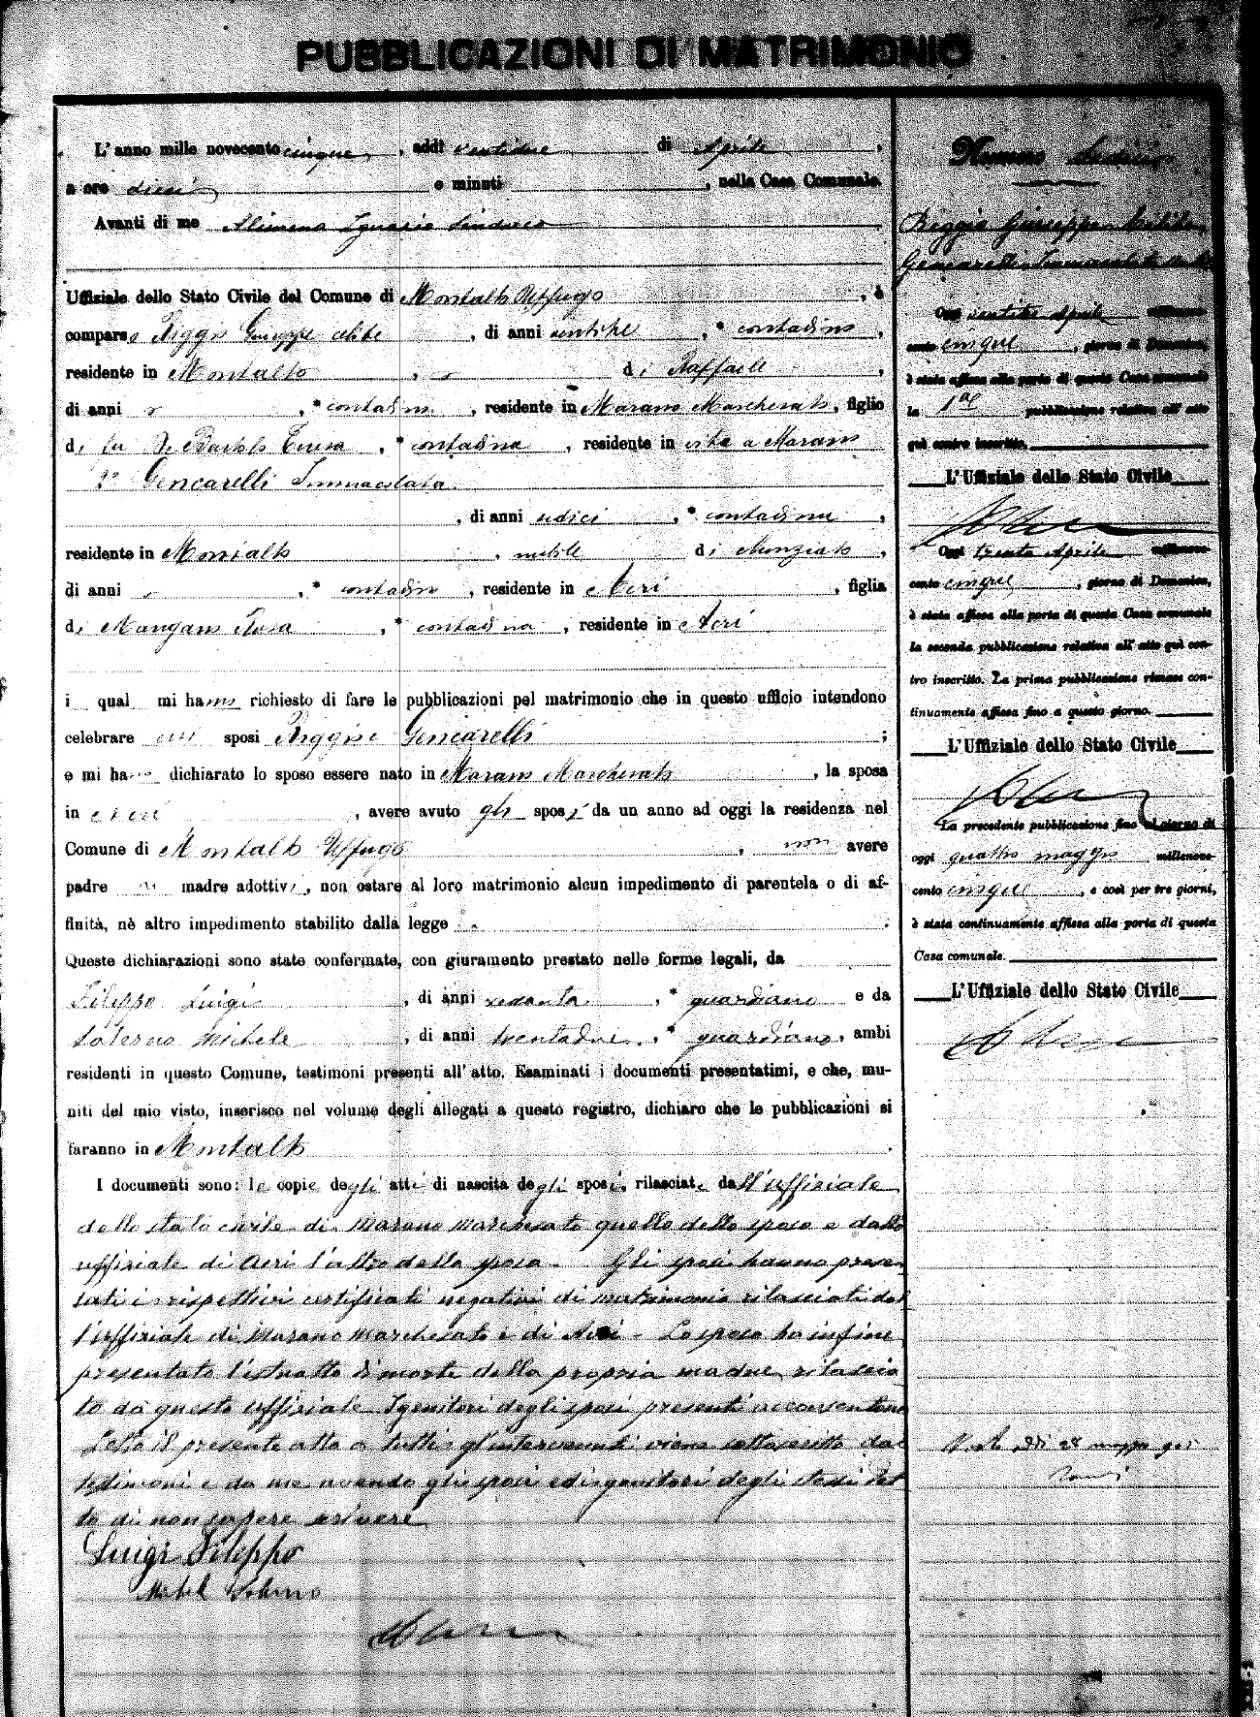 PUBBLICAZIONI DI MATRIMONIO
L'anno mille novecento cinque, addì ventidue di Aprile,
a ore dieci e minuti , nella Casa Comunale.
Avanti di me Alimena Ignazio Sindaco
Uffiziale dello Stato Civile del Comune di Montalto Uffugo, è
compars Giuseppe celibe, di anni , * contadino,
residente in Montalto, di Raffaele,
di anni , * contadino, residente in Marano Marchesato, figlio
di fu De Bartolo Teresa, * contadina, residente in vita a Marano
2° Gencarelli Immacolata
, di anni sedici, * contadina,
residente in Montalto, nubile di Nunziato,
di anni , * contadino, residente in Acri, figlia
di Mangano Rosa, * contadina, residente in Acri
i qual mi hanno richiesto di fare le pubblicazioni pel matrimonio che in questo ufficio intendono
celebrare essi sposi Gencarelli;
e mi hanno dichiarato lo sposo essere nato in Marano Marchesato, la sposa
in Acri, avere avuto gli sposi da un anno ad oggi la residenza nel
Comune di Montalto Uffugo, non avere
padre madre adottivi, non ostare al loro matrimonio alcun impedimento di parentela o di af-
finità, nè altro impedimento stabilito dalla legge.
Queste dichiarazioni sono state confermate, con giuramento prestato nelle forme legali, da
Fileppo Luigi, di anni , * guardiano e da
Salerno Michele, di anni trentadue, * guardiano, ambi
residenti in questo Comune, testimoni presenti all'atto. Esaminati i documenti presentatimi, e che, mu-
niti del mio visto, inserisco nel volume degli allegati a questo registro, dichiaro che le pubblicazioni si
faranno in Montalto.
I documenti sono: le copie degli atti di nascita degli sposi, rilasciate dall'uffiziale
dello stato civile di Marano Marchesato quello dello sposo e dallo
uffiziale di Acri l'altro della sposa. Gli sposi hanno presen
tati i rispettivi certificati negativi di matrimonio rilasciati dal
l'uffiziale di Marano Marchesato e di Acri. Lo sposo ha infine
presentato l'estratto di morte della propria madre, rilascia
to da questo uffiziale. I genitori degli sposi presenti acconsentono
Letto il presente atto a tutti gl'intervenuti viene sottoscritto dai
testimoni e da me avendo gli sposi ed i genitori degli stessi det
to di non sapere scrivere
Luigi Fileppo
Michel Salerno
Numero Sedici
Giuseppe
Gencarelli Immacolata
Oggi Aprile millenove-
cento cinque, giorno di Domenica,
è stata affissa alla porta di questa Casa comunale
la 1a pubblicazione relativa all'atto
quì contro inscritto.
L'Uffiziale dello Stato Civile
Oggi trenta Aprile millenove-
cento cinque, giorno di Domenica,
è stata affissa alla porta di questa Casa comunale
la seconda pubblicazione relativa all'atto quì con-
tro inscritto. La prima pubblicazione rimase con-
tinuamente affissa fino a questo giorno.
L'Uffiziale dello Stato Civile
La precedente pubblicazione fino al giorno di
oggi quattro maggio millenove-
cento cinque, e così per tre giorni,
è stata continuamente affissa alla porta di questa
Casa comunale.
L'Uffiziale dello Stato Civile